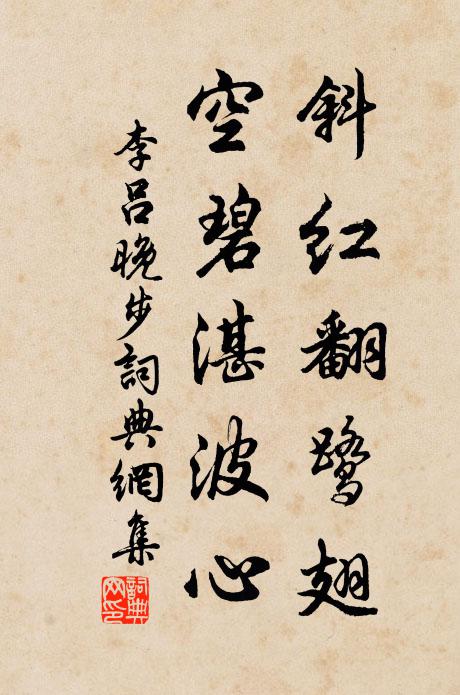 斜红翻鹭翅
空碧湛波心
李吕晚步詞典網集
詞典网印